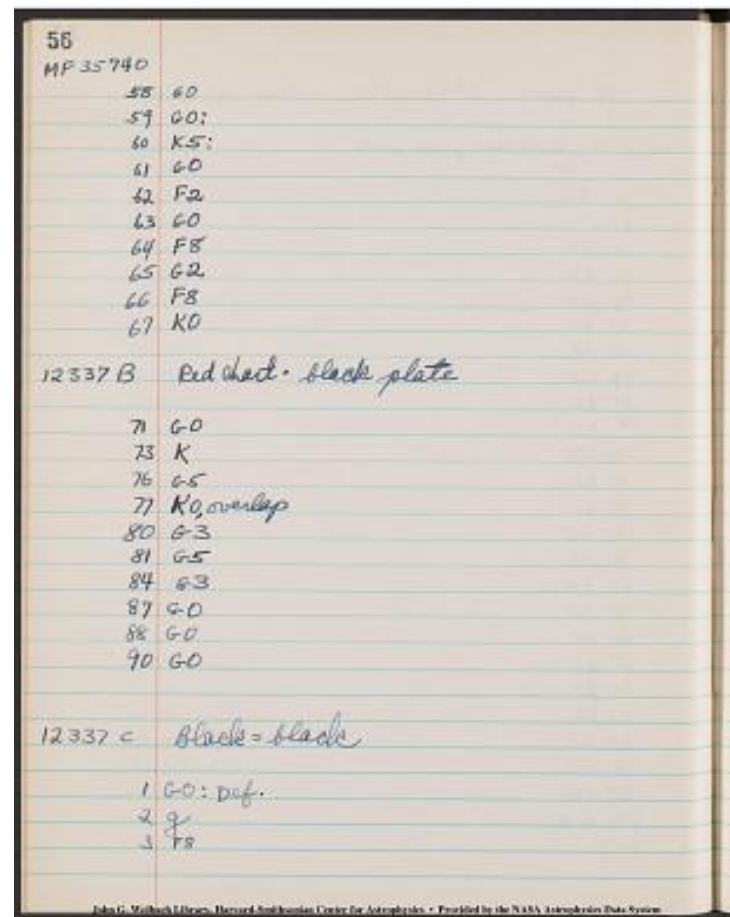 56
MF 35740
58 G0
59 G0:
60 K5:
61 G0
62 F2
63 G0
64 F8
65 G2
66 F8
67 K0
12337 B Red chart · black plate
71 G0
73 K
76 G5
77 K0, overlap
80 G3
81 G5
84 G3
87 G0
88 G0
90 G0
12337 C Black = black
1 G0: Def.
2 g
3 F8
John G. Wolbach Library, Harvard-Smithsonian Center for Astrophysics • Provided by the NASA Astrophysics Data System